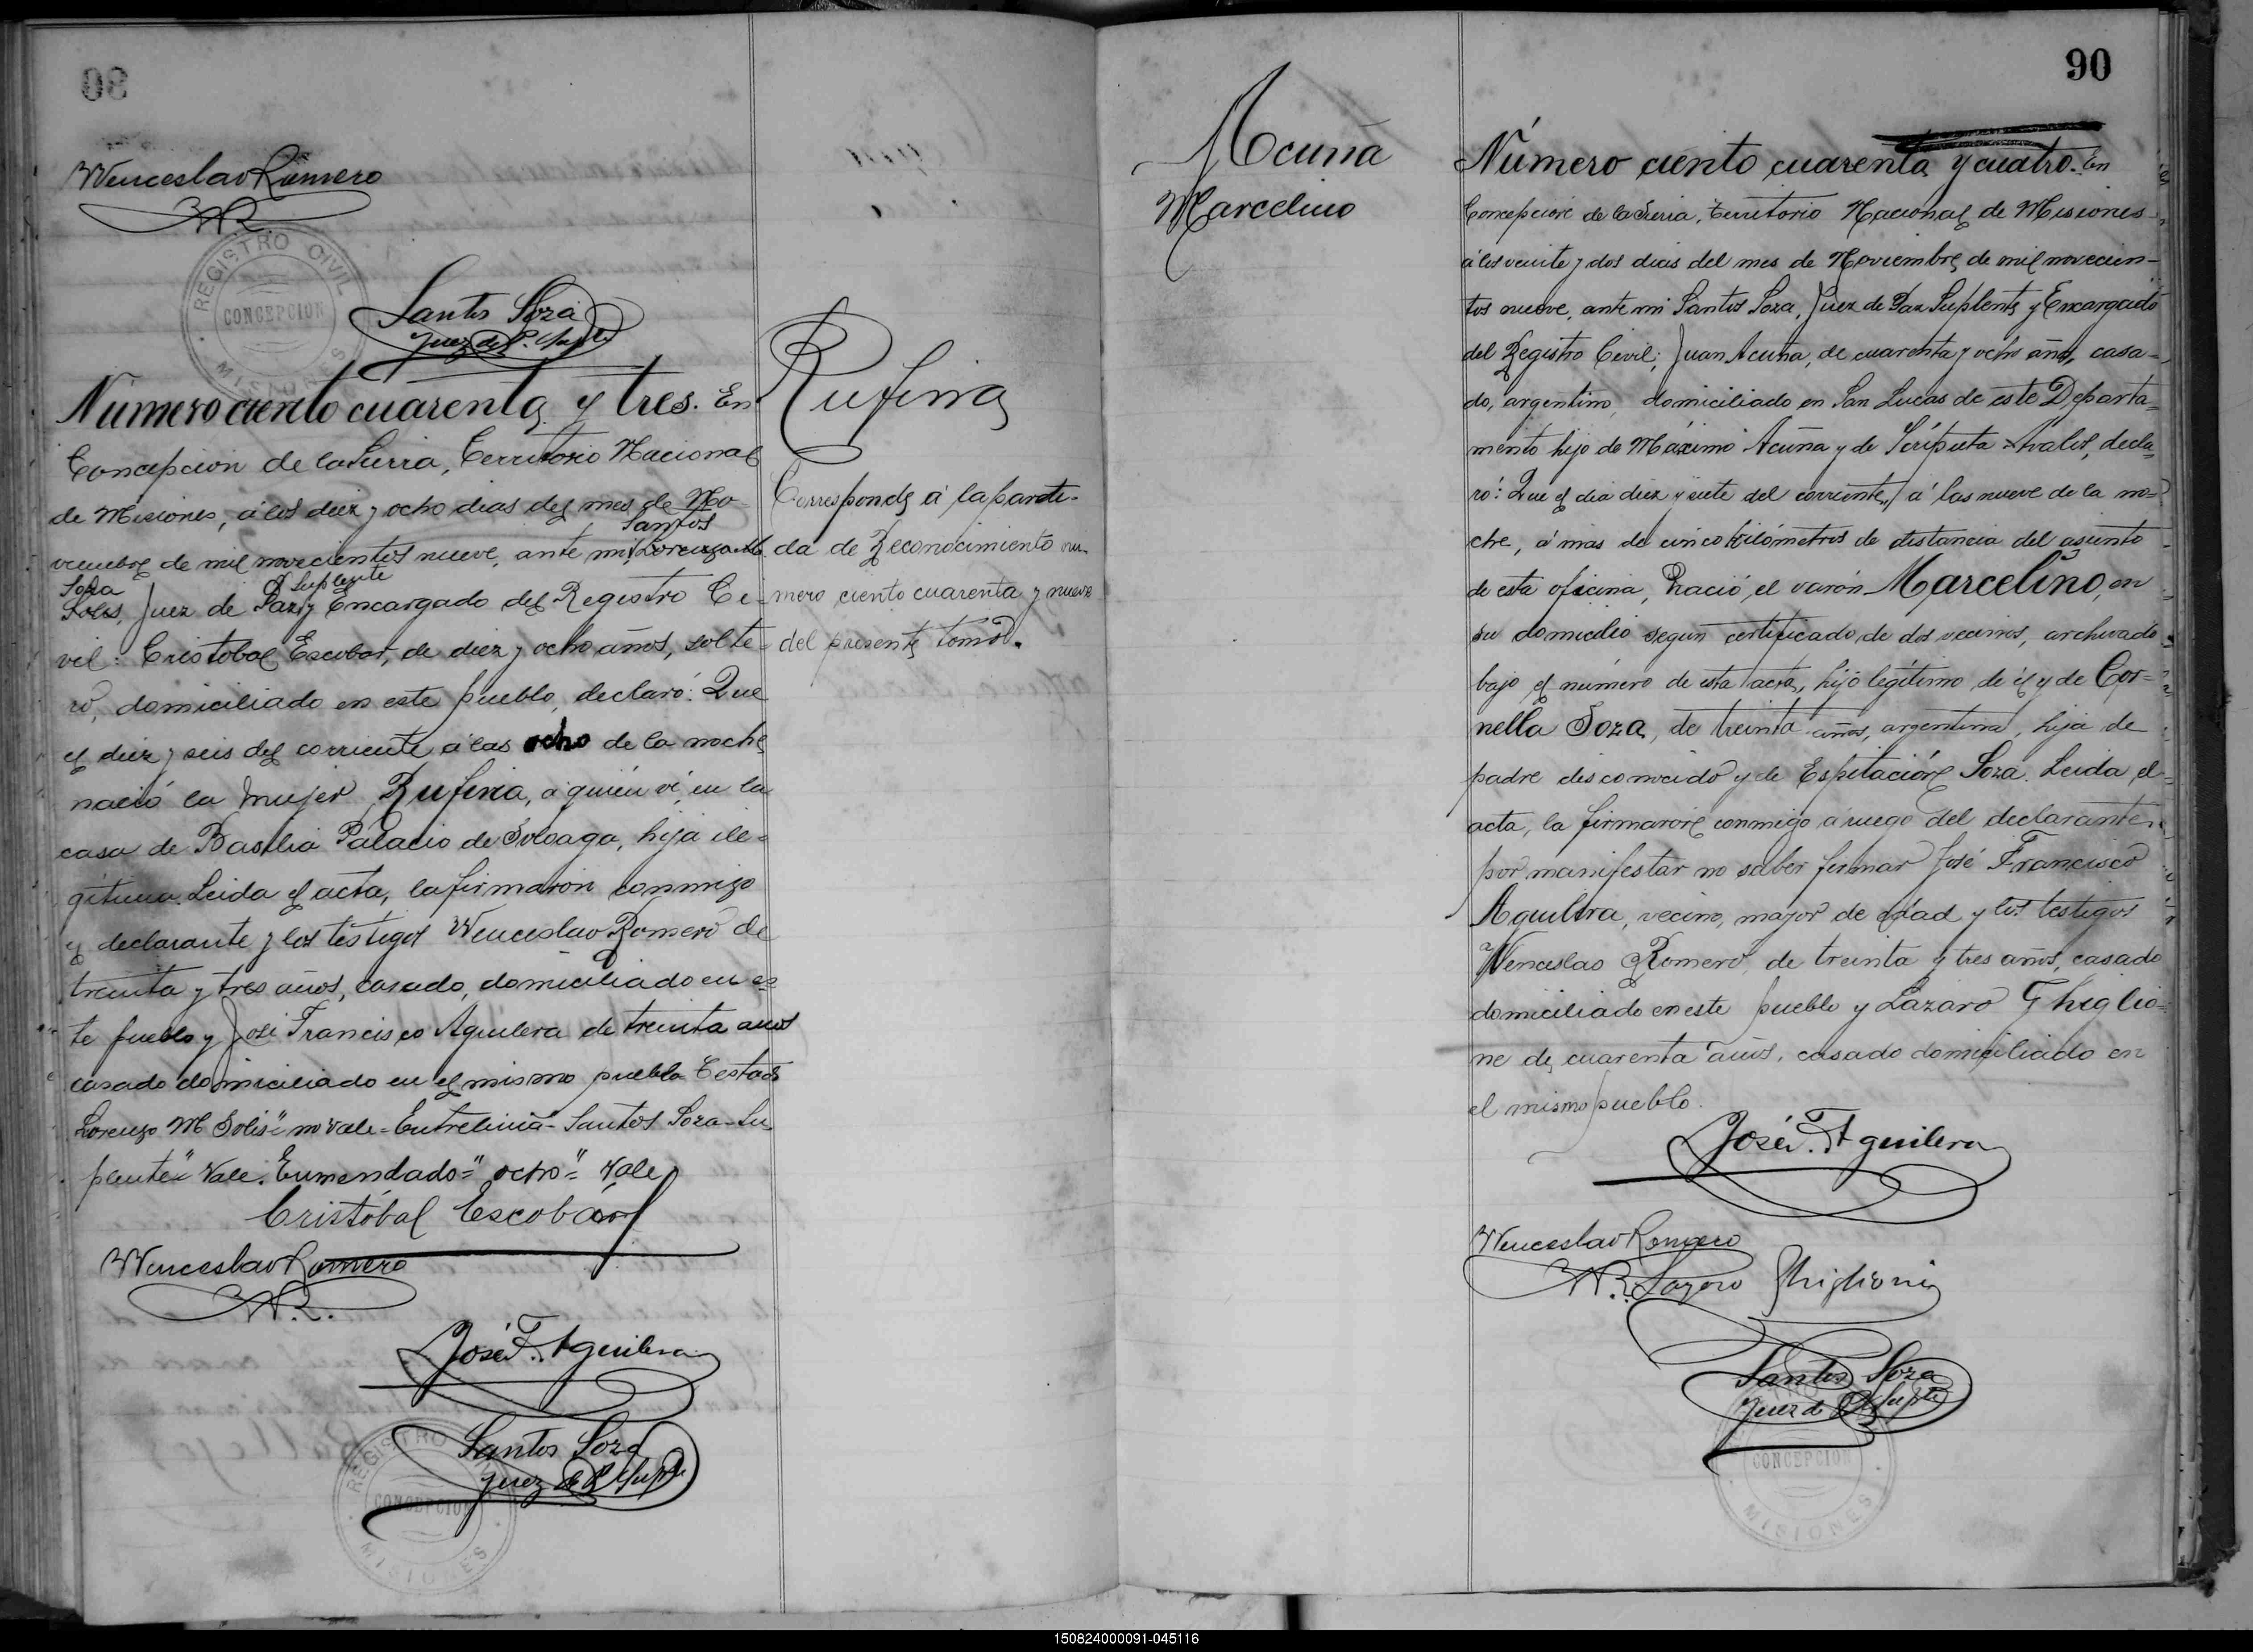 90
Wenceslao Romero
WR.
REGISTRO CIVIL
CONCEPCION
MISIONES
Santos Soza
Juez de P. Suplte
Número ciento cuarenta y tres. En
Concepción de la Sierra, Territorio Nacional
de Misiones, á los diez y ocho dias del mes de No-
Santos
viembre de mil novecientos nueve, ante mi, Lorenzo M.
Soza Suplente
Solis, Juez de Paz y Encargado del Registro Ci-
vil: Cristobal Escobar, de diez y ocho años, solte-
ro, domiciliado en este pueblo, declaró: Que
el diez y seis del corriente á las ocho de la noche
nació la mujer Rufina, a quien vi, en la
casa de Basilia Palacio de Soloaga, hija ile-
gitima. Leida el acta, la firmaron conmigo
el declarante y los testigos Wenceslao Romero de
treinta y tres años, casado, domiciliado en es-
te pueblo y José Francisco Aguilera de treinta años
casado domiciliado en el mismo pueblo Testado
Lorenzo M Solis" no vale - Entrelinia - Santos Soza - Su
plente" Vale. Enmendado=" ocho"= Vale
Cristóbal Escobár
Wenceslao Romero
W.R.
José F. Aguilera
Santos Soza
Juez de P. Suplte
REGISTRO CIVIL
CONCEPCION
MISIONES
Rufina
Corresponde á la parti-
da de Reconocimiento nu-
mero ciento cuarenta y nueve
del presente tomo.
90
Acuña
Marcelino
Número ciento cuarenta y cuatro. En
Concepción de la Sierra, Territorio Nacional de Misiones
á los veinte y dos dias del mes de Noviembre de mil novecien-
tos nueve, ante mi Santos Soza, Juez de Paz Suplente y Encargado
del Registro Civil; Juan Acuña, de cuarenta y ocho años, casa-
do, argentino, domiciliado en San Lucas de este Departa-
mento hijo de Máximo Acuña y de Avalos, decla-
ró: Que el dia diez y siete del corriente, á las nueve de la no-
che, á mas de cinco kilómetros de distancia del asiento
de esta oficina, nació el varón Marcelino, en
su domicilio según certificado de dos vecinos, archivado
bajo el número de esta acta, hijo legítimo de él y de Cor-
nella Soza, de treinta años, argentina, hija de
padre desconocido y de Espitación Soza. Leida el
acta, la firmaron conmigo á ruego del declarante
por manifestar no saber firmar José Francisco
Aguilera, vecino, mayor de edad y los testigos
Wenceslao Romero, de treinta y tres años, casado
domiciliado en este pueblo y Lázaro Ghiglio-
ne de cuarenta años, casado domiciliado en
el mismo pueblo.
José F. Aguilera
Wenceslao Romero
W.R. Lazaro Ghiglione
Santos Soza
Juez de P. Suplte
CONCEPCION
MISIONES
150824000091-045116